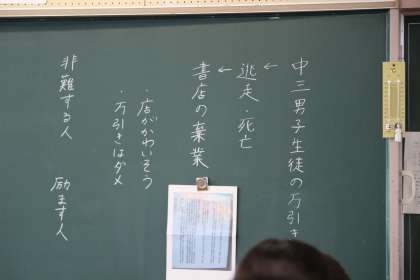 中三男子生徒の万引き
↓
逃走・死亡
↓
書店の棄業
・店がかわいそう
・万引きはダメ
非難する人　励ます人